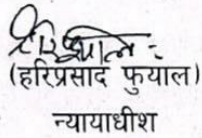 (हरिप्रसाद फुयाल)
न्यायाधीश